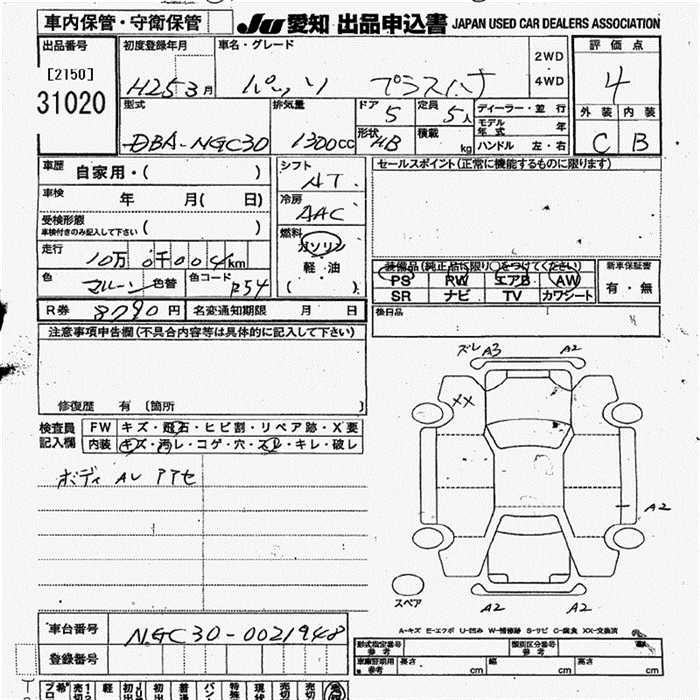 車内保管・守衛保管
JU 愛知 出品申込書 JAPAN USED CAR DEALERS ASSOCIATION
出品番号
[2150]
31020
初度登録年月
H25 3月
車名・グレード
パッソ プラスハナ
2WD
・
4WD
評価点
4
外装 内装
C B
型式
DBA-NGC30
排気量
1300cc
ドア
5
定員
5人
形状
HB
積載
kg
ディーラー・並行
モデル年式 年
ハンドル 左・右
車歴
自家用・( )
車検
年 月( 日)
受検形態
車検付きのみ記入して下さい ( )
走行
10万0千004km
色
マルーン
色替
色コード
R54
シフト
AT
冷房
AAC
燃料
ガソリン
軽・油
( )
セールスポイント(正常に機能するものに限ります)
装備品(純正品に限り○をつけてください)
PS RW エアB AW
SR ナビ TV カワシート
新車保証書
有・無
後日品
R券 8790円
名変通知期限 月 日
注意事項申告欄(不具合内容等は具体的に記入して下さい)
修復歴 有 〔箇所 〕
検査員
記入欄
FW キズ・飛石・ヒビ割・リペア跡・X要
内装 キズ・汚レ・コゲ・穴・スレ・キレ・破レ
ボディ AU PPセ
ズレ A3
A2
XX
A2
A2
A2
スペア
A-キズ E-エクボ U-凹み W-補修跡 S-サビ C-腐食 XX-交換済
車台番号
NGC30-0021948
登録番号
型式指定番号
参考
類別区分番号
参考
車庫証明用
参考
長さ cm
幅 cm
高さ cm